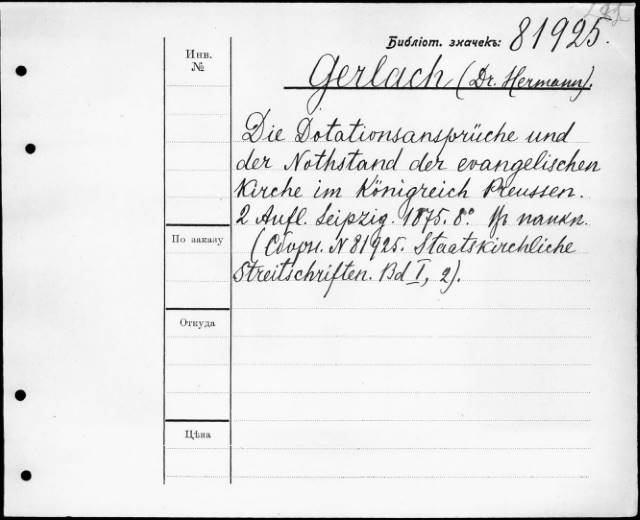 Библіот. значекъ: 81925.
Инв.
№
Gerlach (Dr. Hermann).
Die Dotationsansprüche und
der Nothstand der evangelischen
Kirche im Königreich Preussen.
2 Aufl. Leipzig. 1875. 8°. папкп.
По заказу
(Сборн. N 81925. Staatskirchliche
Streitschriften. Bd I, 2).
Откуда
Цѣна